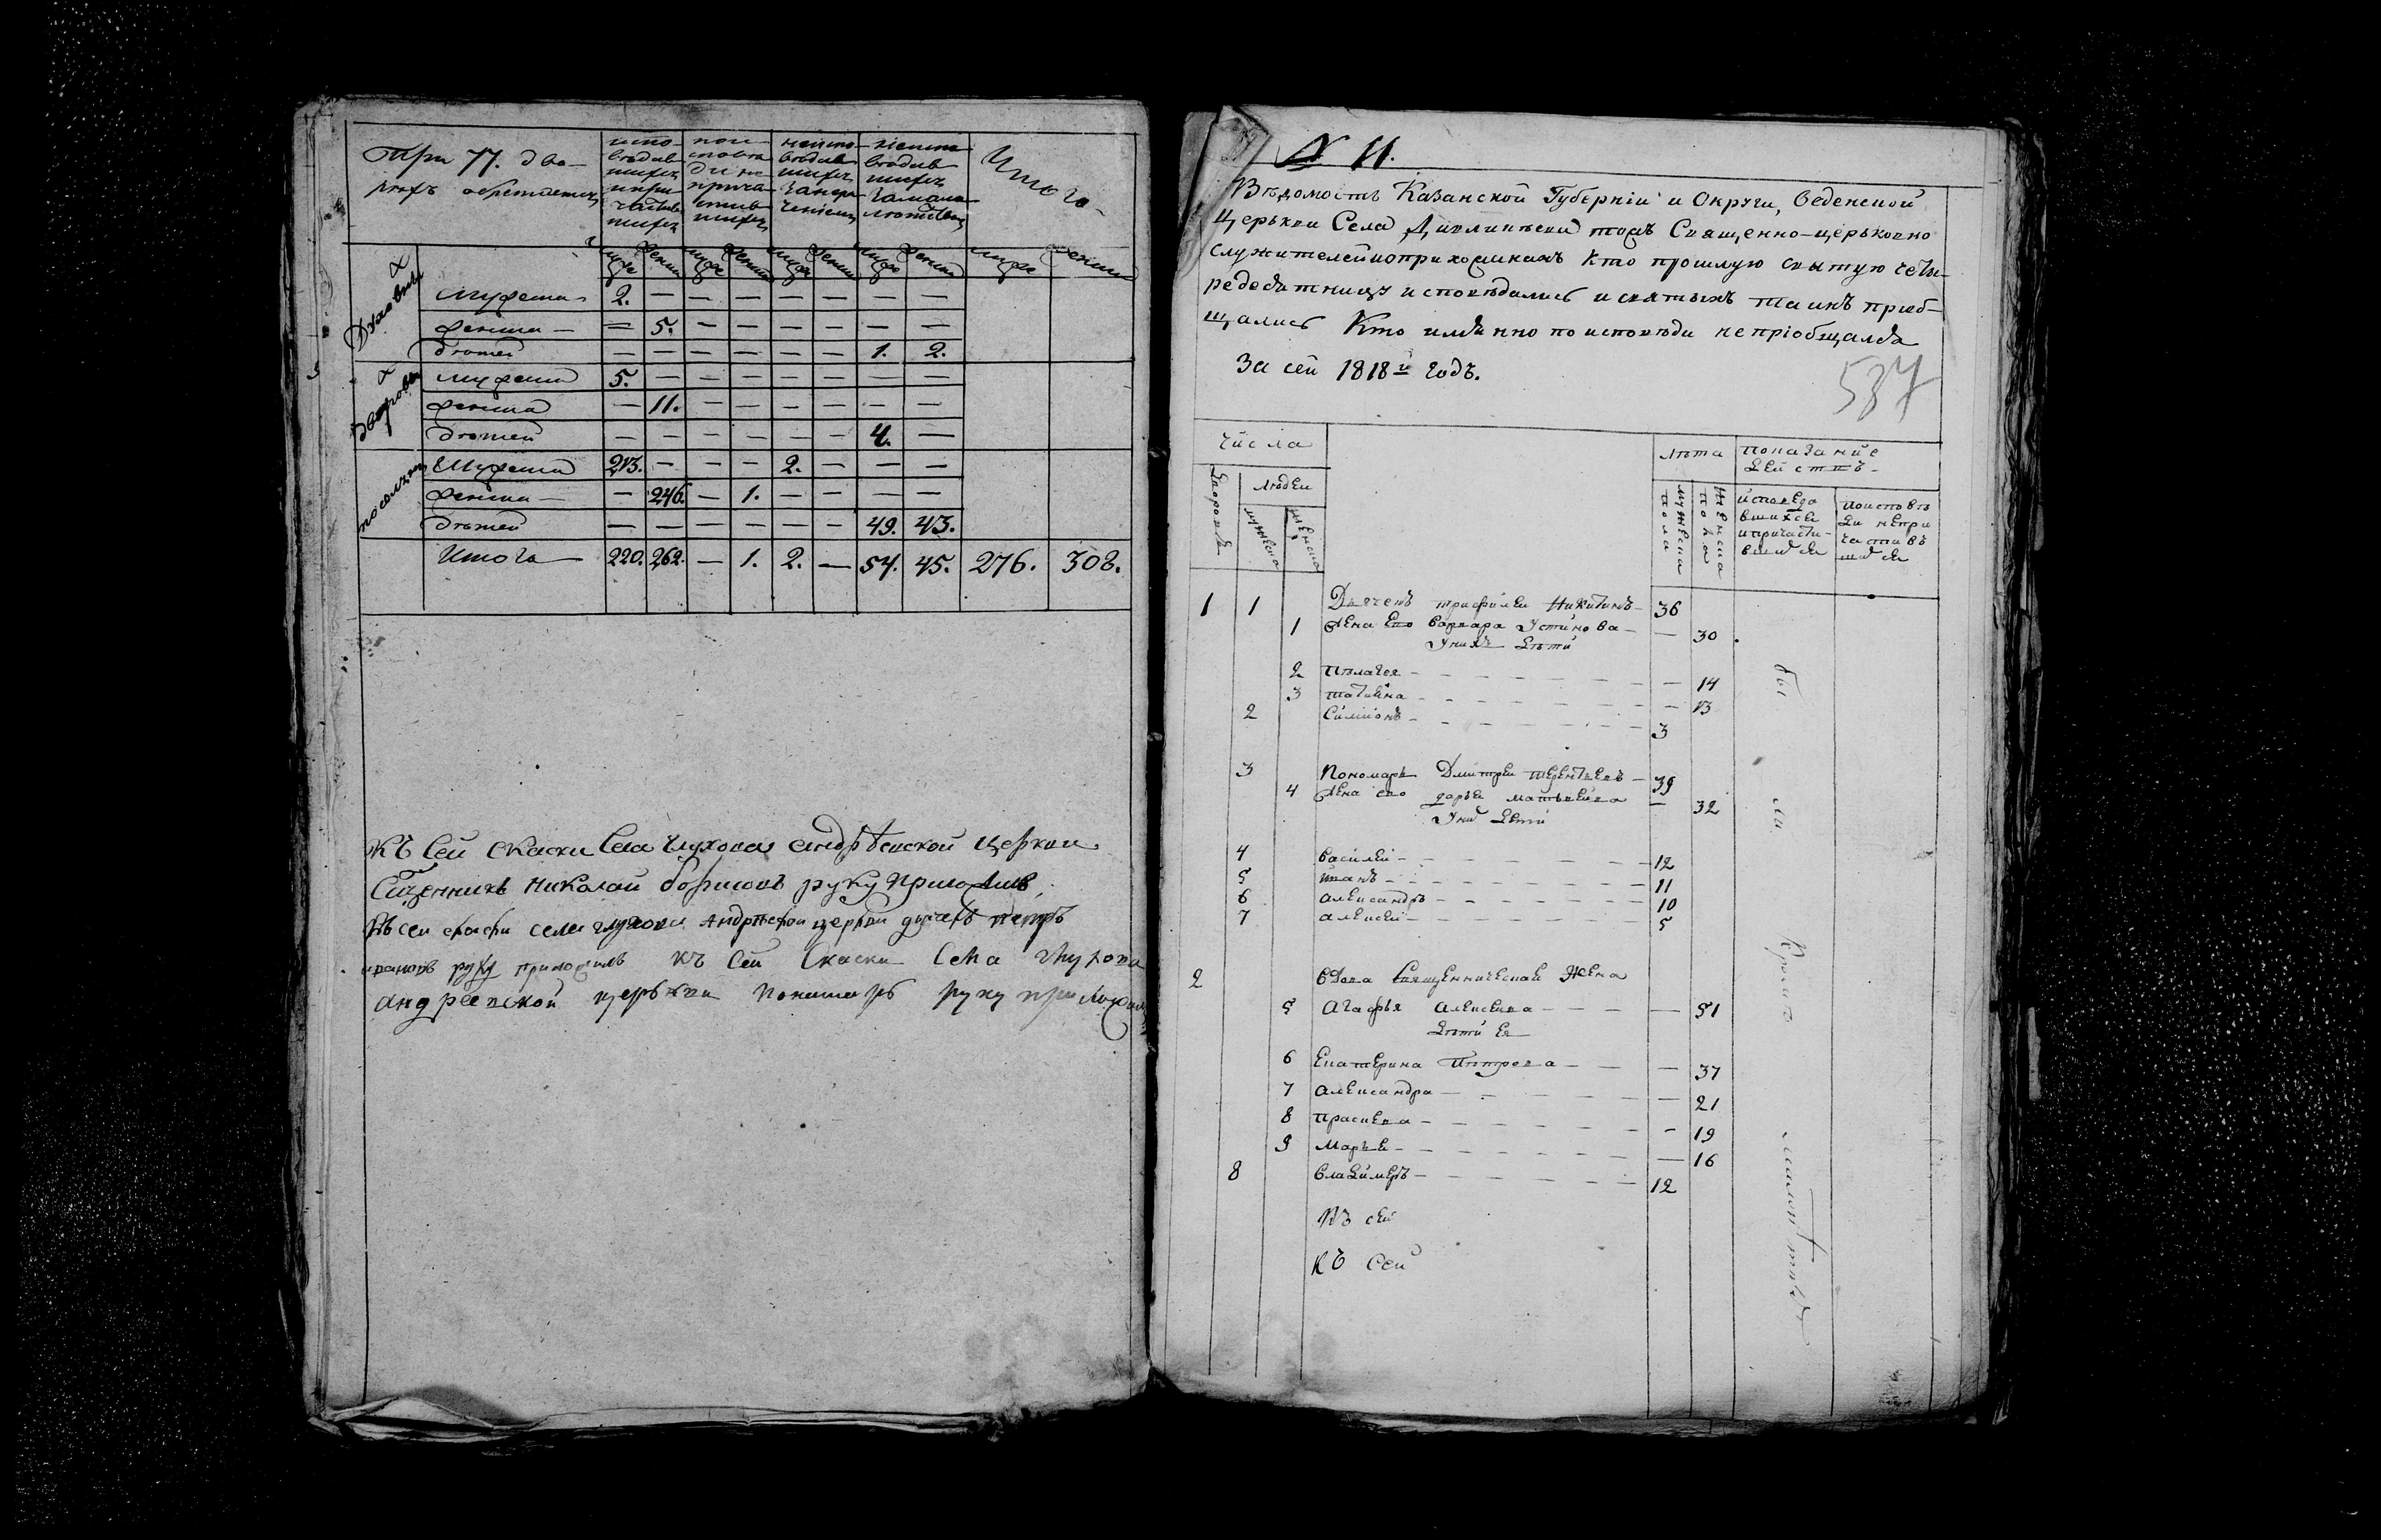 При 77. дво-
рахъ обретается
испо-
ведав
шихся
и при
частив
шихся
по и
споведи не
прича
стив
шихся
неиспо-
ведав
шихся
неиспо
ведав
шихся
за мало
летствомъ
Итого
Духовныхъ
мужеска 2. — — — — — — —
женска — — 5. — — — — — —
детей — — — — — — 1. 2.
дворовыхъ
мужеска 5. — — — — — — —
женска — 11. — — — — — —
детей — — — — — — 4. —
поселянъ
мужеска 213. — — — 2. — — —
женска — — 246. — 1. — — — —
детей — — — — — — 49. 43.
Итого — 220. 262. — 1. 2. — 54. 45. 276. 308.
Къ сей скаски села глухова андреевской церкви
Сщенникъ Николай борисовъ руку приложилъ
Къ сей скаски села глухова Андреевской церкви дьячекъ петръ
ивановъ руку приложилъ къ сей скаски села глухова
андреевской церькви пономарь руку приложилъ
N 11.
Вѣдомость Казанской Губерніи и Округи, Веденской
Церькви Села тожъ Священно-церьковно
служителей и о прихожанахъ кто прошлую святую четы-
редесятницу исповѣдались и святыхъ таинъ приоб-
щались Кто имянно по исповѣди непріобщался
За сей 1818 й Годъ.
537
числа
лѣта
показание
дѣйствъ
дворовъ
людей
мужеска
женска
мужеска
пола
женска
пола
исповеда
вшихся
и причасти-
вшихся
по исповѣ
ди непри
частивъ
шихся
1 1 Дьячекъ трифилеи Никитинъ — 36
1 Жена Его варвара Устинова — — 30
У нихъ Дѣти
2 Пѣлагея — — 14
3 татиана — — 13
2 Симионъ — 3
3 Пономарь Дмитреи терентьевъ — 39
4 Жена его дарья матвеива — 32
У них Дети
4 Василеи — 12
5 иванъ — 11
6 александръ — 10
7 алексеи — 5
2 вдова Священническая Жена
5 Агафья алексеива — — 51
дѣти Ея
6 Екатерина Петрова — — 37
7 александра — — 21
8 прасковa — — 19
9 Марья — — 16
8 владимеръ — 12
Къ сей
Къ Сей
бы
ли
Кромѣ